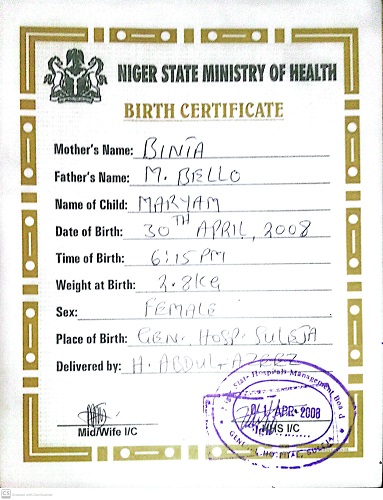 NIGER STATE MINISTRY OF HEALTH
BIRTH CERTIFICATE
Mother's Name: BINTA
Father's Name: M. BELLO
Name of Child: MARYAM
Date of Birth: 30TH APRIL, 2008
Time of Birth: 6:15 PM
Weight at Birth: 2.8KG
Sex: FEMALE
Place of Birth: GEN. HOSP. SULEJA
Delivered by: H. ABDUL-AZEEZ
State Hospitals Management Board
APR 2008
Mid/Wife I/C
I/C
HOSPITAL, SULEJA
CS